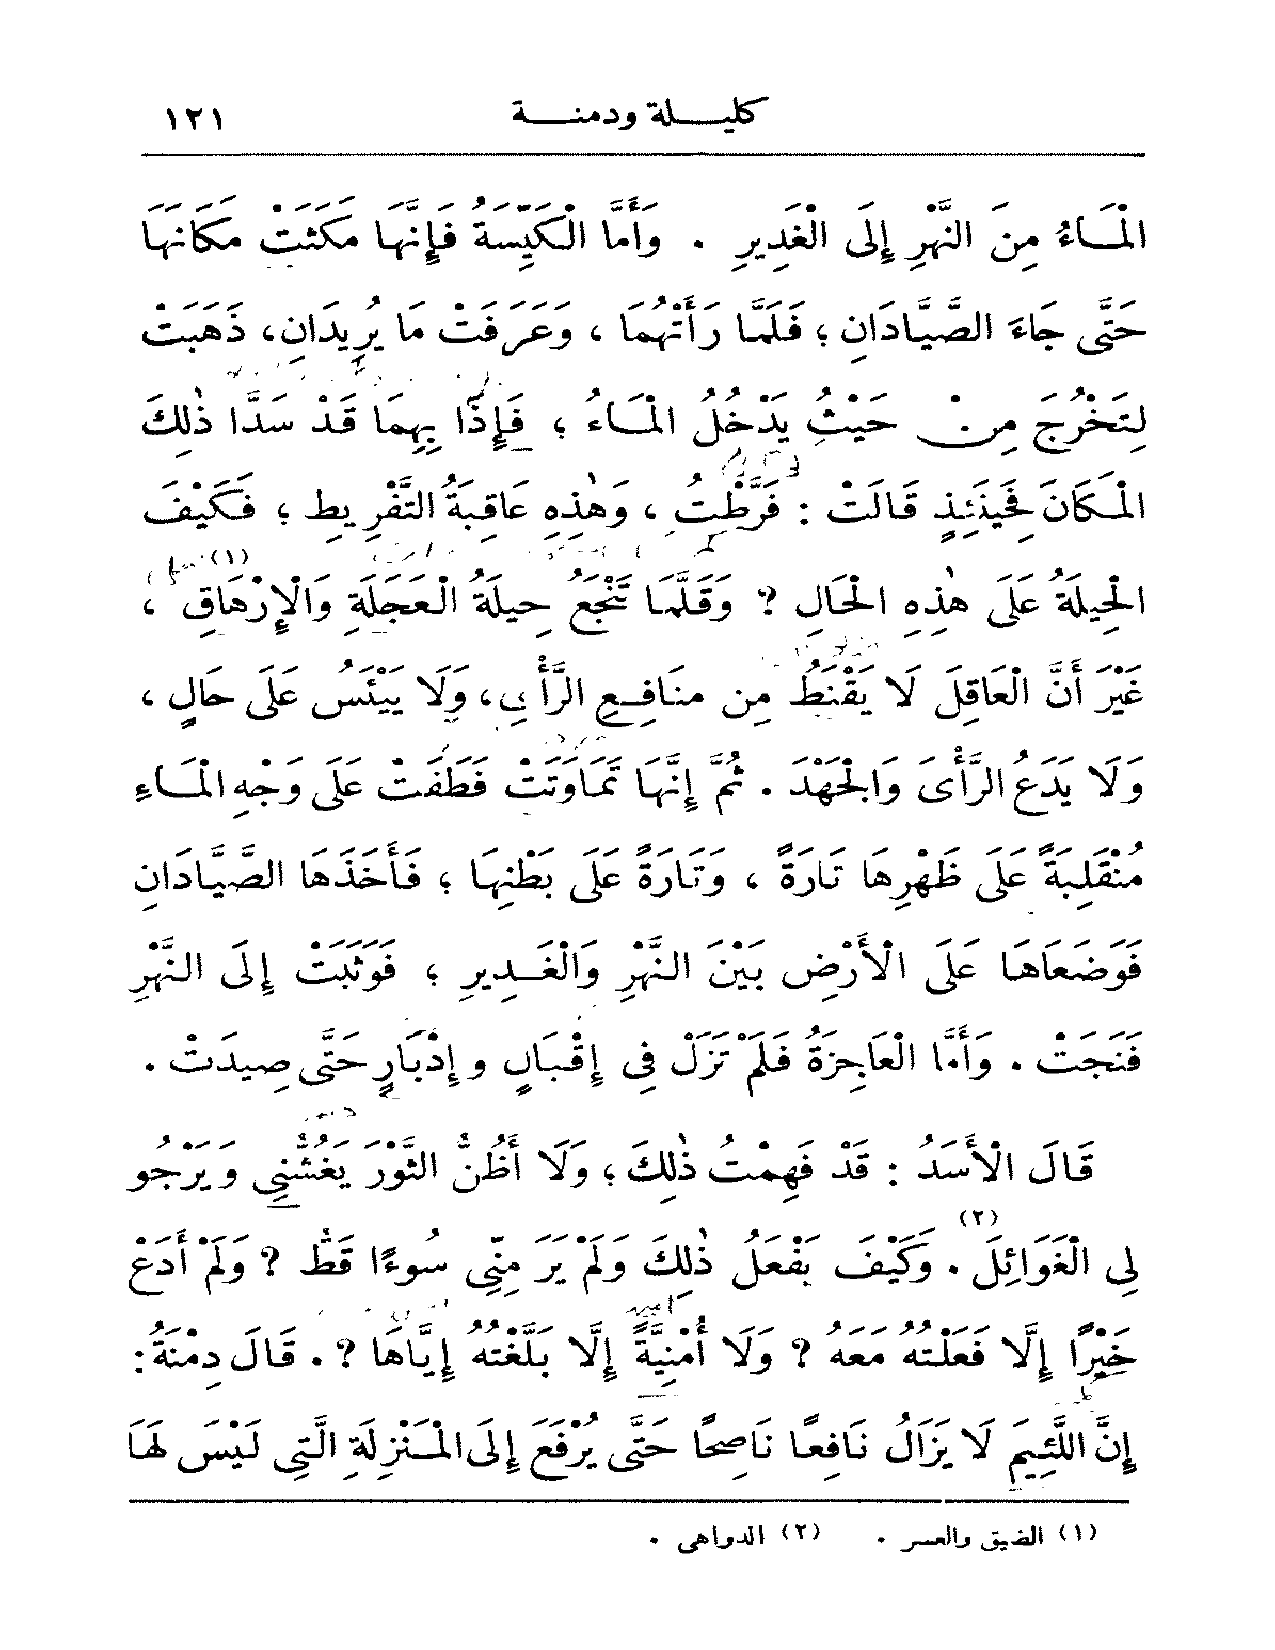 كليـــلة ودمنـــة ١٢١
الْمَـاءُ مِنَ النَّهْرِ إِلَى الْغَدِيرِ . وَأَمَّا الْكَيِّسَةُ فَإِنَّهَا مَكَثَتْ مَكَانَهَا
حَتَّى جَاءَ الصَّيَّادَانِ ؛ فَلَمَّا رَأَتْهُمَا ، وَعَرَفَتْ مَا يُرِيدَانِ، ذَهَبَتْ
لِتَخْرُجَ مِنْ حَيْثُ يَدْخُلُ الْمَـاءُ ؛ فَإِذَا بِهِمَا قَدْ سَدَّا ذٰلِكَ
الْمَـكَانَ فَحِينَئِذٍ قَالَتْ : فَرَّطْتُ ، وَهٰذِهِ عَاقِبَةُ التَّفْرِيطِ ؛ فَكَيْفَ
الْحِيلَةُ عَلَى هٰذِهِ الْحَالِ ؟ وَقَلَّمَا تَنْجَعُ حِيلَةُ الْعَجَلَةِ وَالْإِرْهَاقِ (١) ،
غَيْرَ أَنَّ الْعَاقِلَ لَا يَقْنَطُ مِن مَنَافِـعِ الرَّأْىِ ، وَلَا يَيْئَسُ عَلَى حَالٍ ،
وَلَا يَدَعُ الرَّأْىَ وَالْجَهْدَ . ثُمَّ إِنَّهَا تَمَاوَتَتْ فَطَفَتْ عَلَى وَجْهِ الْمَـاءِ
مُنْقَلِبَةً عَلَى ظَهْرِهَا تَارَةً ، وَتَارَةً عَلَى بَطْنِهَا ؛ فَأَخَذَهَا الصَّيَّادَانِ
فَوَضَعَاهَا عَلَى الْأَرْضِ بَيْنَ النَّهْرِ وَالْغَـدِيرِ ؛ فَوَثَبَتْ إِلَى النَّهْرِ
فَنَجَتْ . وَأَمَّا الْعَاجِزَةُ فَلَمْ تَزَلْ فِى إِقْبَالٍ وَ إِدْبَارٍ حَتَّى صِيدَتْ .
قَالَ الْأَسَدُ : قَدْ فَهِمْتُ ذٰلِكَ ؛ وَلَا أَظُنُّ الثَّوْرَ يَغُشُّنِى وَ يَرْجُو
لِى الْغَوَائِلَ (٢) . وَكَيْفَ يَفْعَلُ ذٰلِكَ وَلَمْ يَرَ مِنِّى سُوءًا قَطُّ ؟ وَلَمْ أَدَعْ
خَيْرًا إِلَّا فَعَلْتُهُ مَعَهُ ؟ وَلَا أُمْنِيَّةً إِلَّا بَلَّغْتُهُ إِيَّاهَا ؟ . قَالَ دِمْنَةُ:
إِنَّ اللَّئِيمَ لَا يَزَالُ نَافِعًا نَاصِحًا حَتَّى يُرْفَعَ إِلَى الْمَـنْزِلَةِ الَّتِى لَيْسَ لَهَا
(١) الضيق والعسر . (٢) الدواهى .